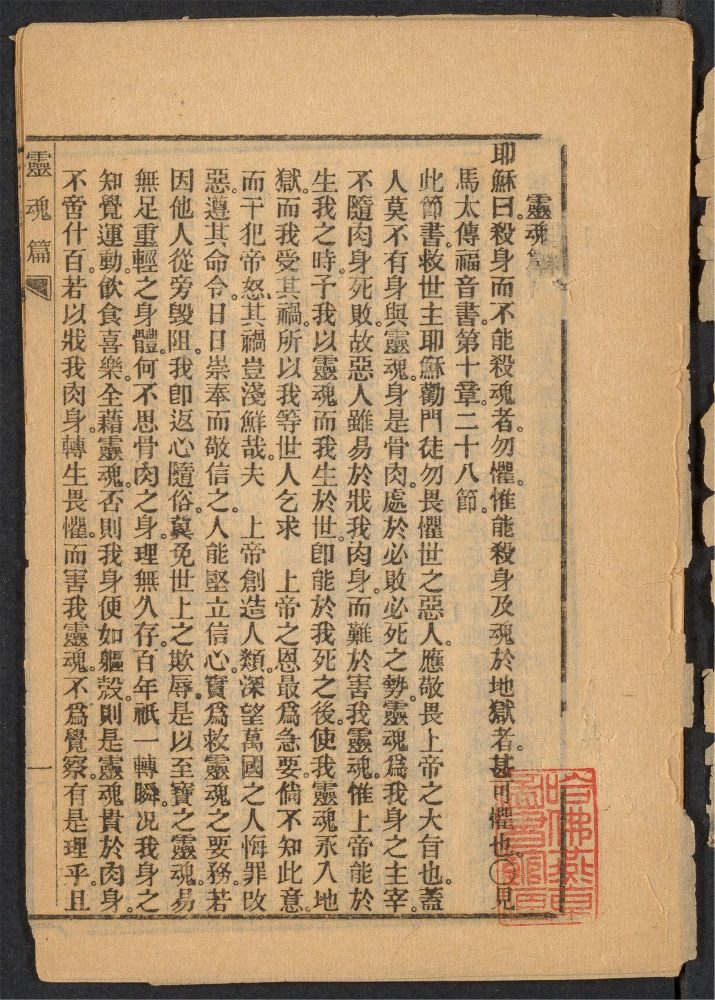 靈魂篇
耶穌曰。殺身而不能殺魂者。勿懼。惟能殺身及魂於地獄者。甚可懼也。〇見
馬太傳福音書第十章二十八節。
此節書救世主耶穌勸門徒勿畏懼世之惡人。應敬畏上帝之大旨也。蓋
人莫不有身與靈魂。身是骨肉。處於必敗必死之勢。靈魂爲我身之主宰。
不隨肉身死敗。故惡人雖易於戕我肉身。而難於害我靈魂。惟上帝能於
生我之時。予我以靈魂。而我生於世。卽能於我死之後。使我靈魂永入地
獄。而我受其禍。所以我等世人乞求　上帝之恩。最爲急要。倘不知此意。
而干犯帝怒。其禍豈淺鮮哉。夫　上帝創造人類。深望萬國之人悔罪改
惡。遵其命令。日日崇奉而敬信之。人能堅立信心。實爲救靈魂之要務。若
因他人從旁毀阻。我卽返心隨俗。冀免世上之欺辱。是以至寶之靈魂。易
無足重輕之身體。何不思骨肉之身。理無久存。百年祇一轉瞬。况我身之
知覺運動。飲食喜樂。全藉靈魂。否則我身便如軀殼。則是靈魂貴於肉身。
不啻什百。若以戕我肉身。轉生畏懼。而害我靈魂。不爲覺察。有是理乎。且
靈魂篇
一